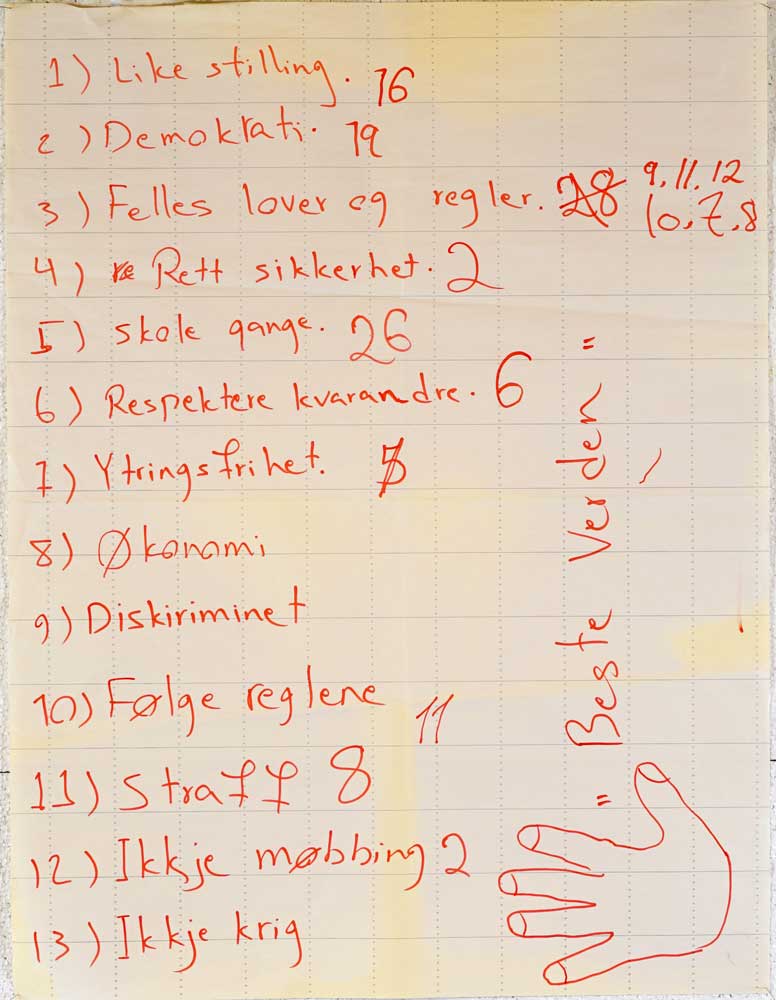 1) Like stilling. 16
2) Demokrati. 19
3) Felles lover og regler. 28 9, 11, 12
10, 7, 8
4) Rett sikkerhet. 2
5) skole gange. 26
6) Respektere kvarandre. 6
7) Ytringsfrihet.
8) Økonomi
9) Diskiriminet
10) Følge reglene
11
11) Straff 8
12) Ikkje møbbing 2
13) Ikkje krig
= Beste Verden =